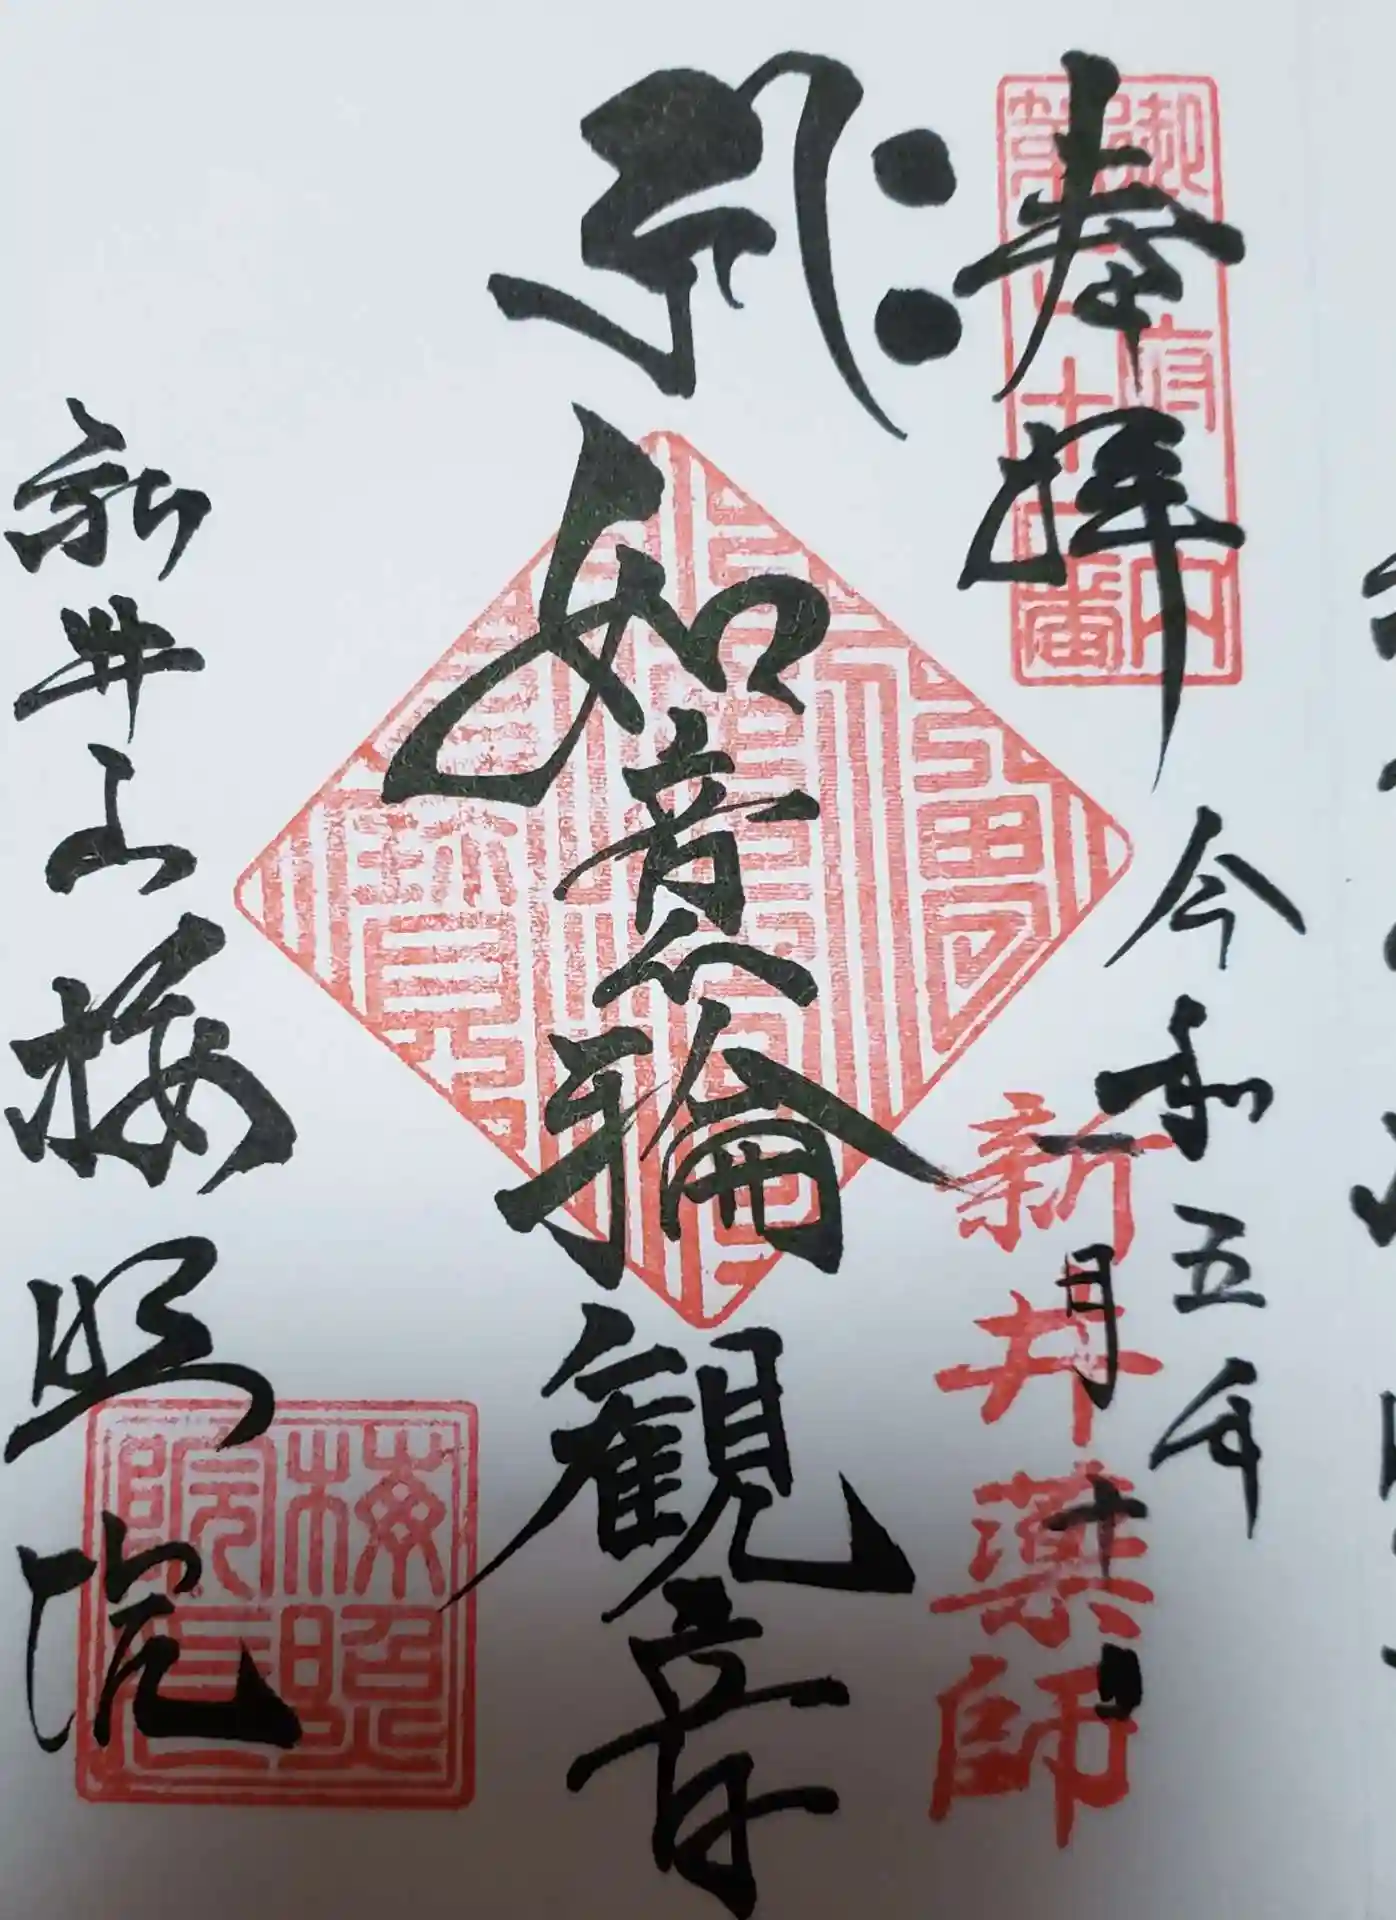 奉拝
令和五年
一月十日
新井薬師
御府内
第七十一番
如意輪観音
新井山梅照院
梅照
院